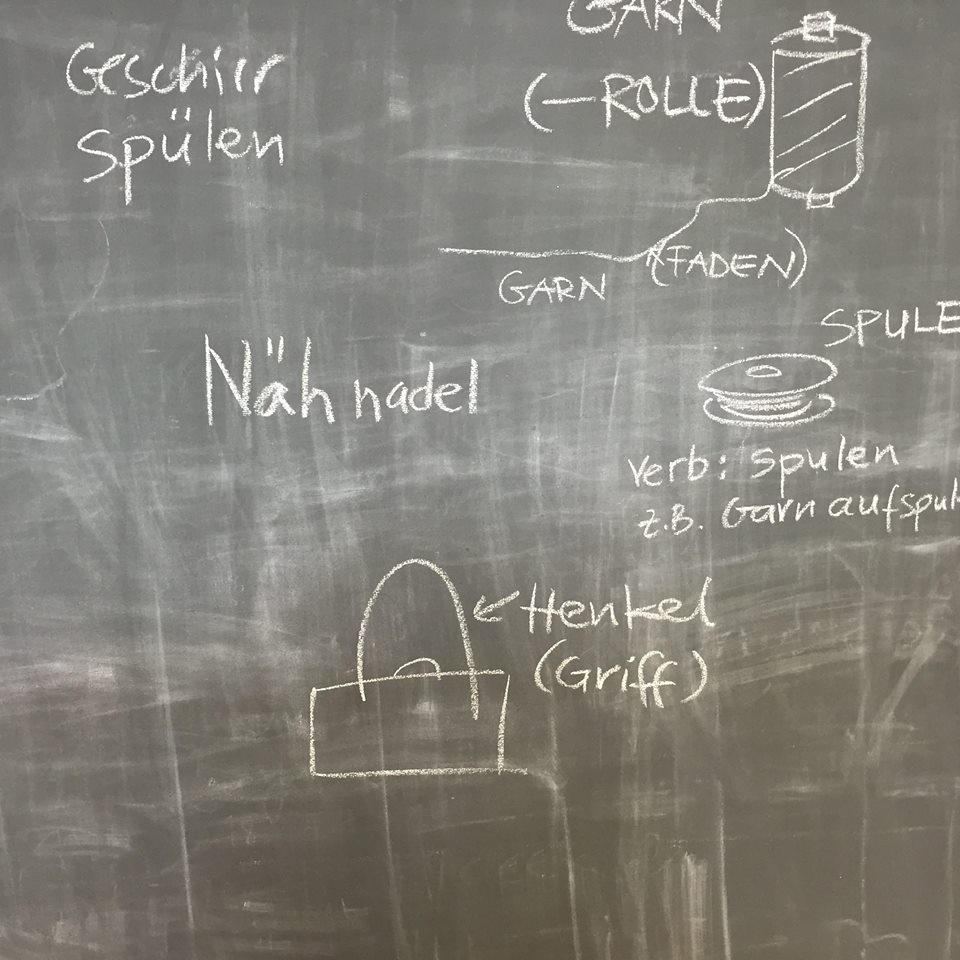 Geschirr
spülen
GARN
(-ROLLE)
GARN (FADEN)
Näh nadel
SPULE
verb: spulen
z.B. Garn aufspul
Henkel
(Griff)